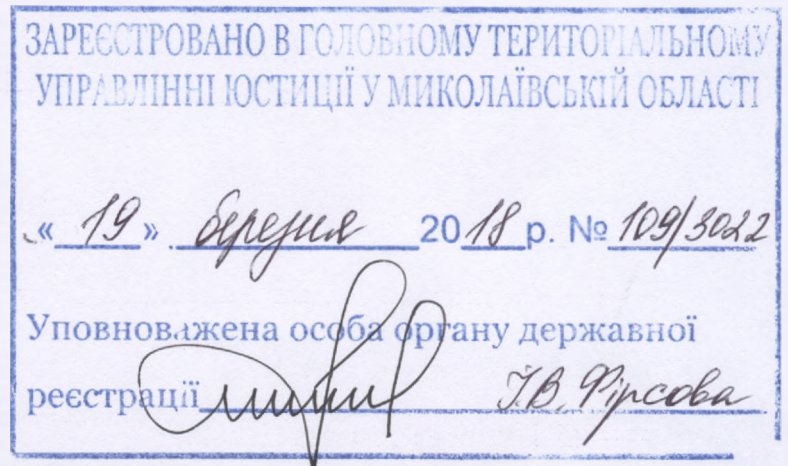 ЗАРЕЄСТРОВАНО В ГОЛОВНОМУ ТЕРИТОРІАЛЬНОМУ
УПРАВЛІННІ ЮСТИЦІЇ У МИКОЛАЇВСЬКІЙ ОБЛАСТІ
« 19 » березня 2018 р. № 109/3022
Уповноважена особа органу державної
реєстрації І.В. Фірсова